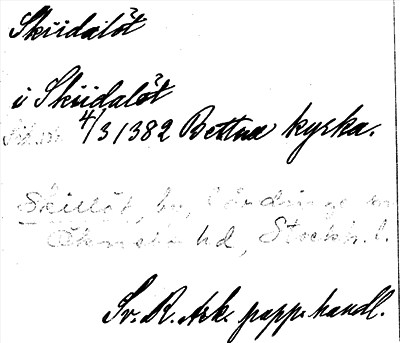 Skiidalöt
i Skiidalöt
4/3 1382 Bettna kyrka.
Skillöt, by,
hd, Stockh. l.
Sv. R. Ark. papp. handl.